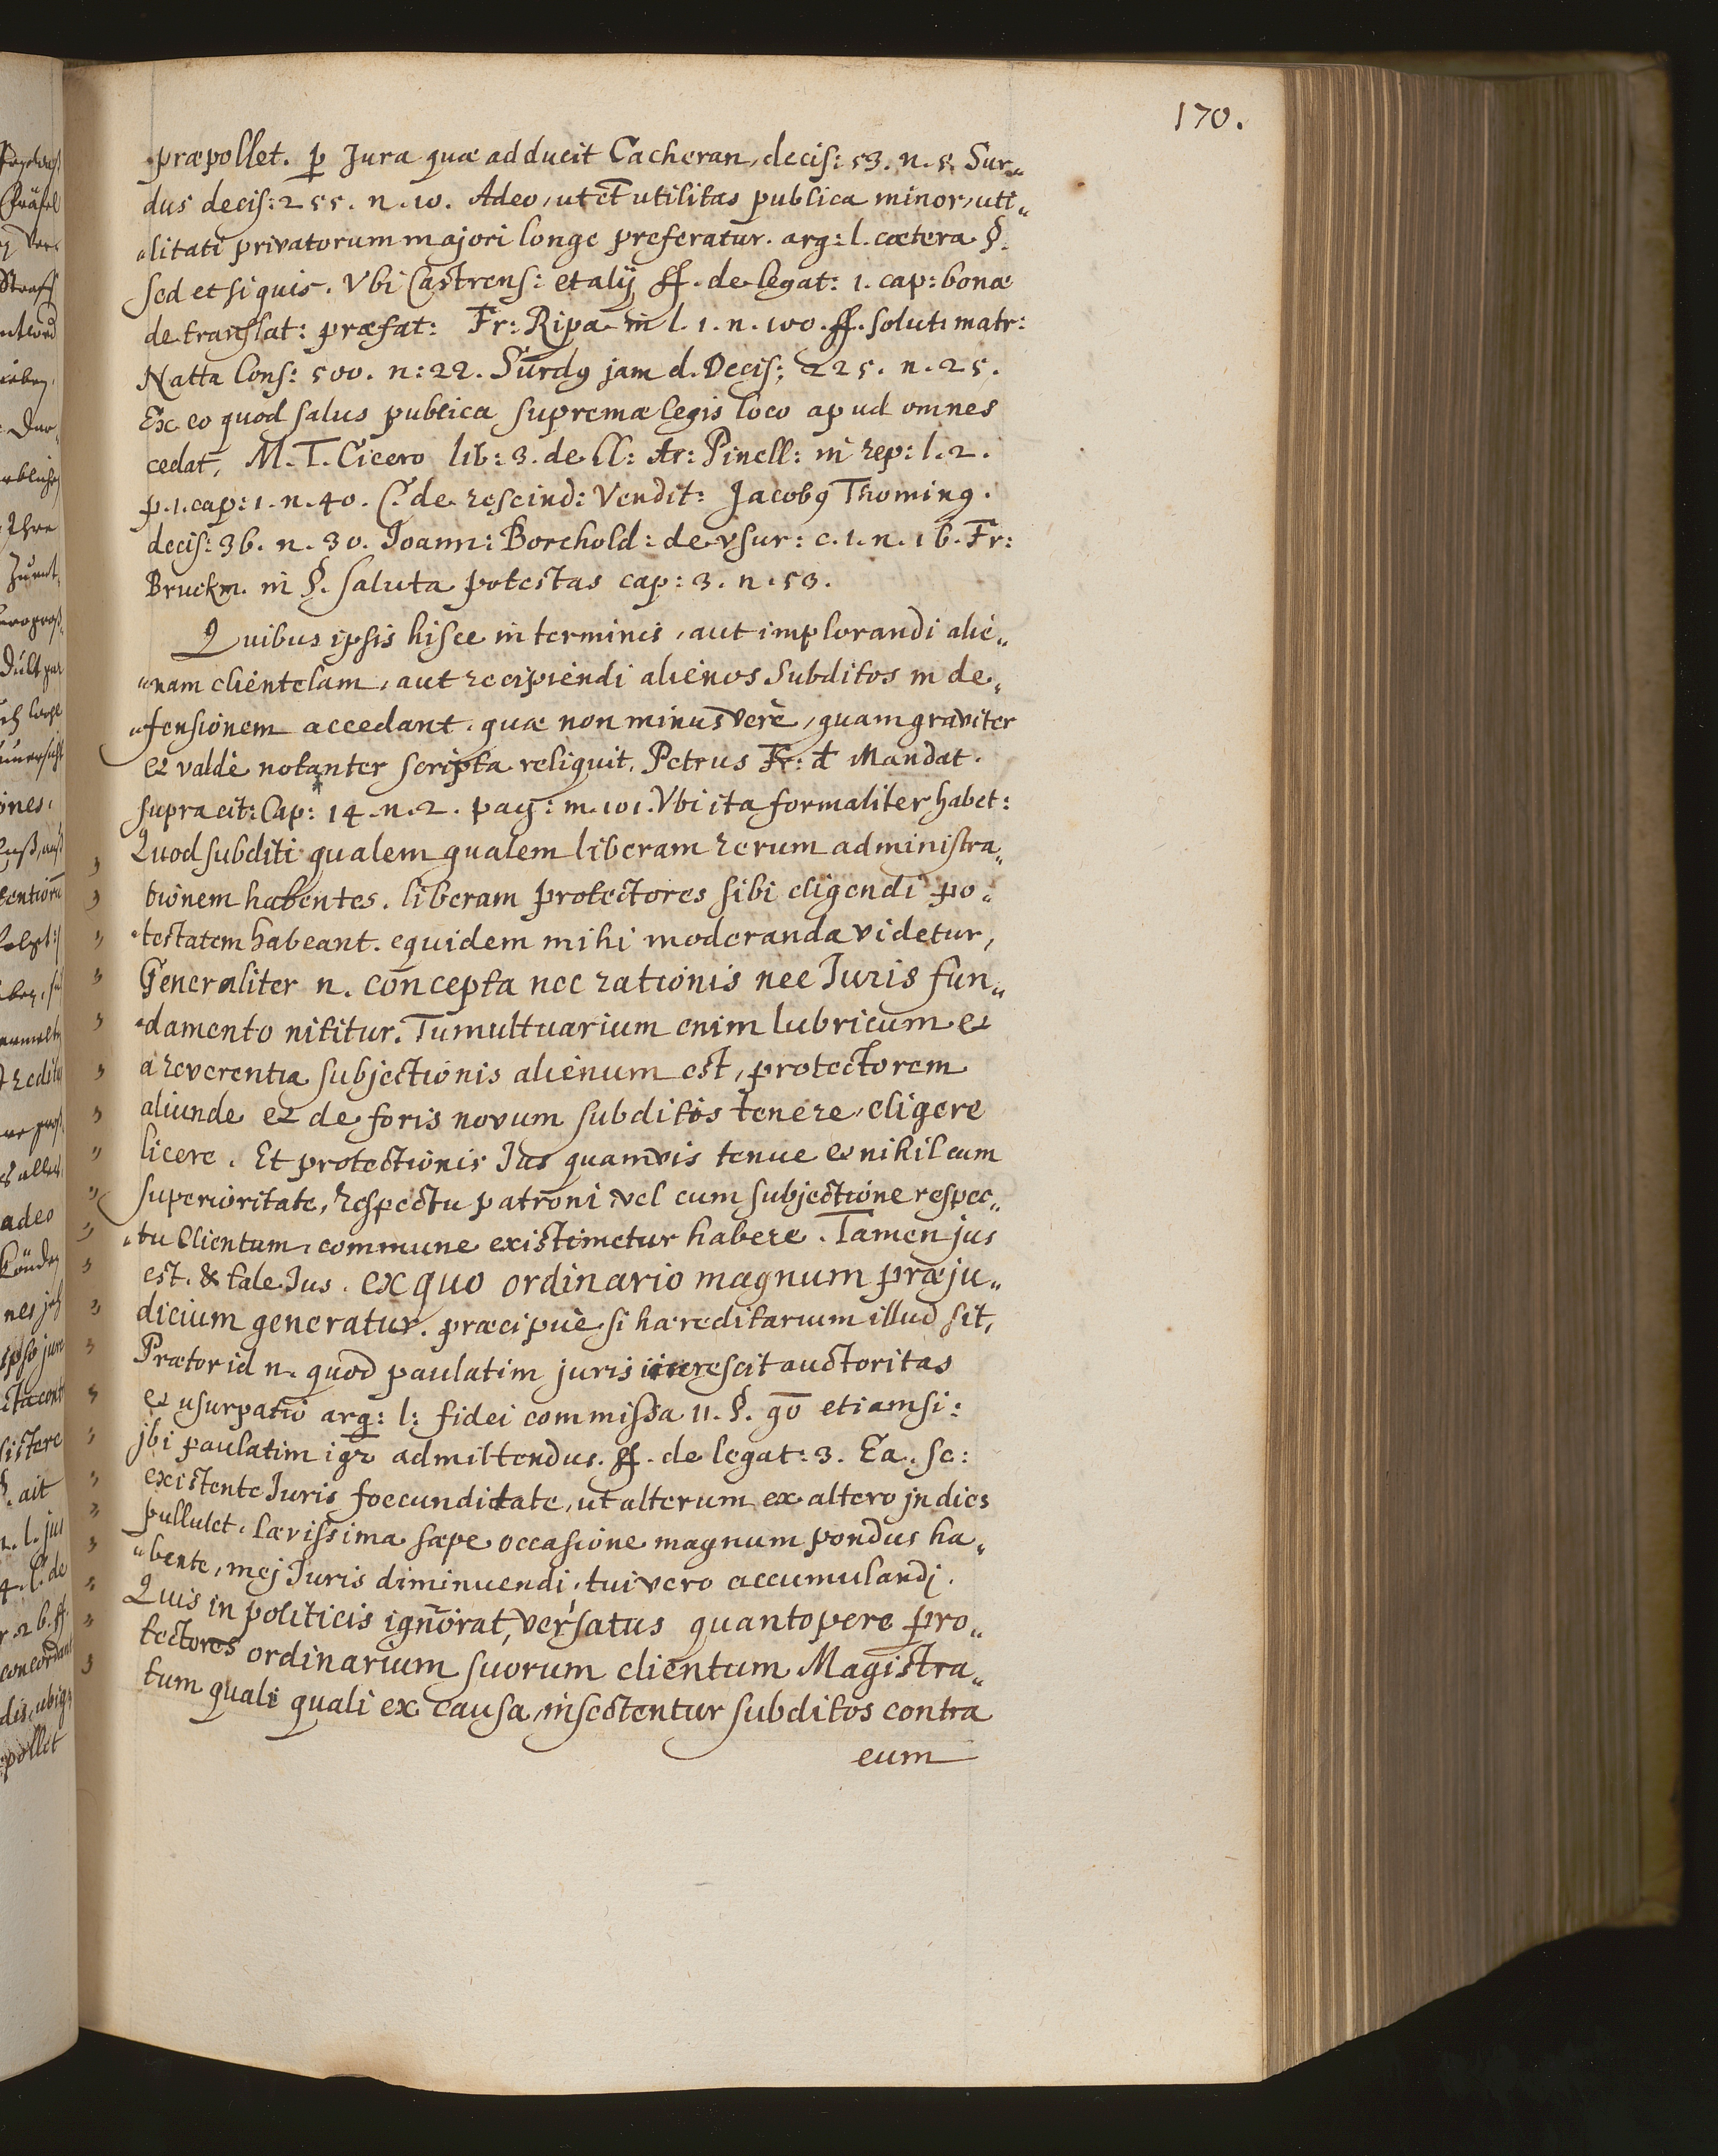 170.
præpollet. p Jura quæ adducit Cacheran, decis: 53. n. 5. Sur„
dus decis: 255. n. 10. Adeo, ut et utilitas publica minor, uti„
„litati privatorum majori longe preferatur. arg: l. cætera §.
sed et si quis. Vbi Castrens: et alÿ ff. de legat: 1. cap: bonæ
de translat: præfat: Fr: Ripa in l. 1. n. 100. ff. solut: matr:
Natta Cons: 500. n: 22. Surdq jam d. Decis: 225. n. 25.
Ex eo quod salus publica supremæ legis loco apud omnes
cedat, M. T. Cicero lib: 3. de ll: Ar: Pinell: in rep: l. 2.
p. 1. cap: 1. n. 40. C. de rescind: Vendit: Jacobq Thomingq.
decis: 36. n. 30. Joann: Borchold: de vsur: c. 1. n. 16. Fr:
Bruckm. in §. saluta potestas cap: 3. n. 53.
Quibus ipsis hisce in terminis, aut implorandi alie„
„nam clientelam, aut recipiendi alienos Subditos in de„
„fensionem accedant. quæ non minus verè, quam graviter
et valdè notanter scripta reliquit, Petrus Fr: d Mandat.
supra cit: Cap: 14. n. 2. pag: m. 101. Vbi ita formaliter habet:
Quod subditi qualem qualem liberam rerum administra„
tionem habentes. liberam protectores sibi eligendi po„
„testatem habeant. equidem mihi moderanda videtur,
Generaliter n. concepta nec rationis nec Juris fun„
„damento nititur. Tumultuarium enim lubricum et
a reverentia subjectionis alienum est, protectorem
aliunde et de foris novum subditos tenere, eligere
licere. Et protectionis Jus quamvis tenue et nihil cum
superioritate, respectu patroni vel cum subjectione respec„
„tu Clientum, commune existimetur habere. Tamen jus
est. & tale Jus. ex quo ordinario magnum præju„
dicium generatur. præcipuè si hæreditarium illud sit,
Prætor id n. quod paulatim juris increscit auctoritas
et usurpatio arg: l: fidei commissa 11. §. qō etiamsi:
jbi paulatim igr admittendus. ff. de legat: 3. Ea. sc:
existente Juris foecunditate, ut alterum ex altero jn dies
pullulet. Lævissima sæpe occasione magnum pondus ha„
„bente, mej Juris diminuendi, tui vero accumulandj.
Quis in politicis ignorat, versatus quantopere pro„
tectores ordinarium suorum clientum Magistra„
tum quali quali ex causa, insectentur subditos contra
eum